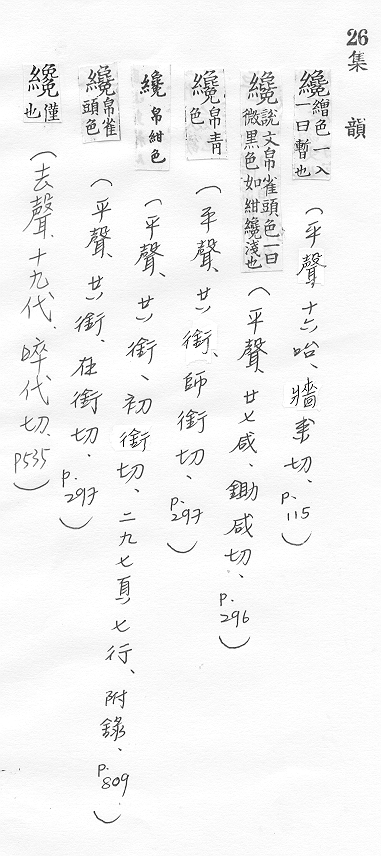 26 集韻
纔繒色一入一曰暫也（平聲、十六咍、牆來切、p.115）
纔說文帛雀頭色一曰微黑色如紺纔淺也（平聲、廿七咸、鋤咸切、p.296）
纔帛青色（平聲、廿八銜、師銜切、p.297）
纔帛紺色（平聲、廿八銜、初銜切、二九七頁、七行、附錄、p.809）
纔帛雀頭色（平聲、廿八銜、在銜切、p.297）
纔僅也（去聲、十九代、昨代切、p535）